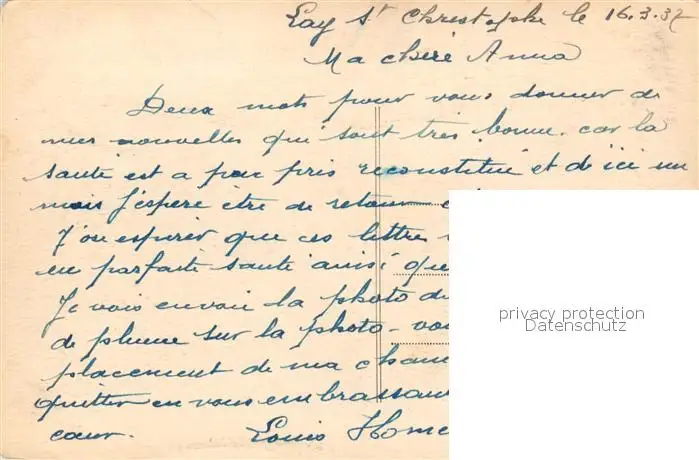 Lay St Christophe le 16.3.37
Ma chère Anna
Deux mots pour vous donner de
mes nouvelles qui sont très bonne. car la
santé est a peu pris reconstitué et de ici un
mois J'espere être de retour
J'ose esperer que ces lettres
en parfaite santé ainsi que
Je vois envoie la photo de
de plume sur la photo - vou
placement de ma cham
quitter en vous embrassan
cœur. Louis
privacy protection
Datenschutz